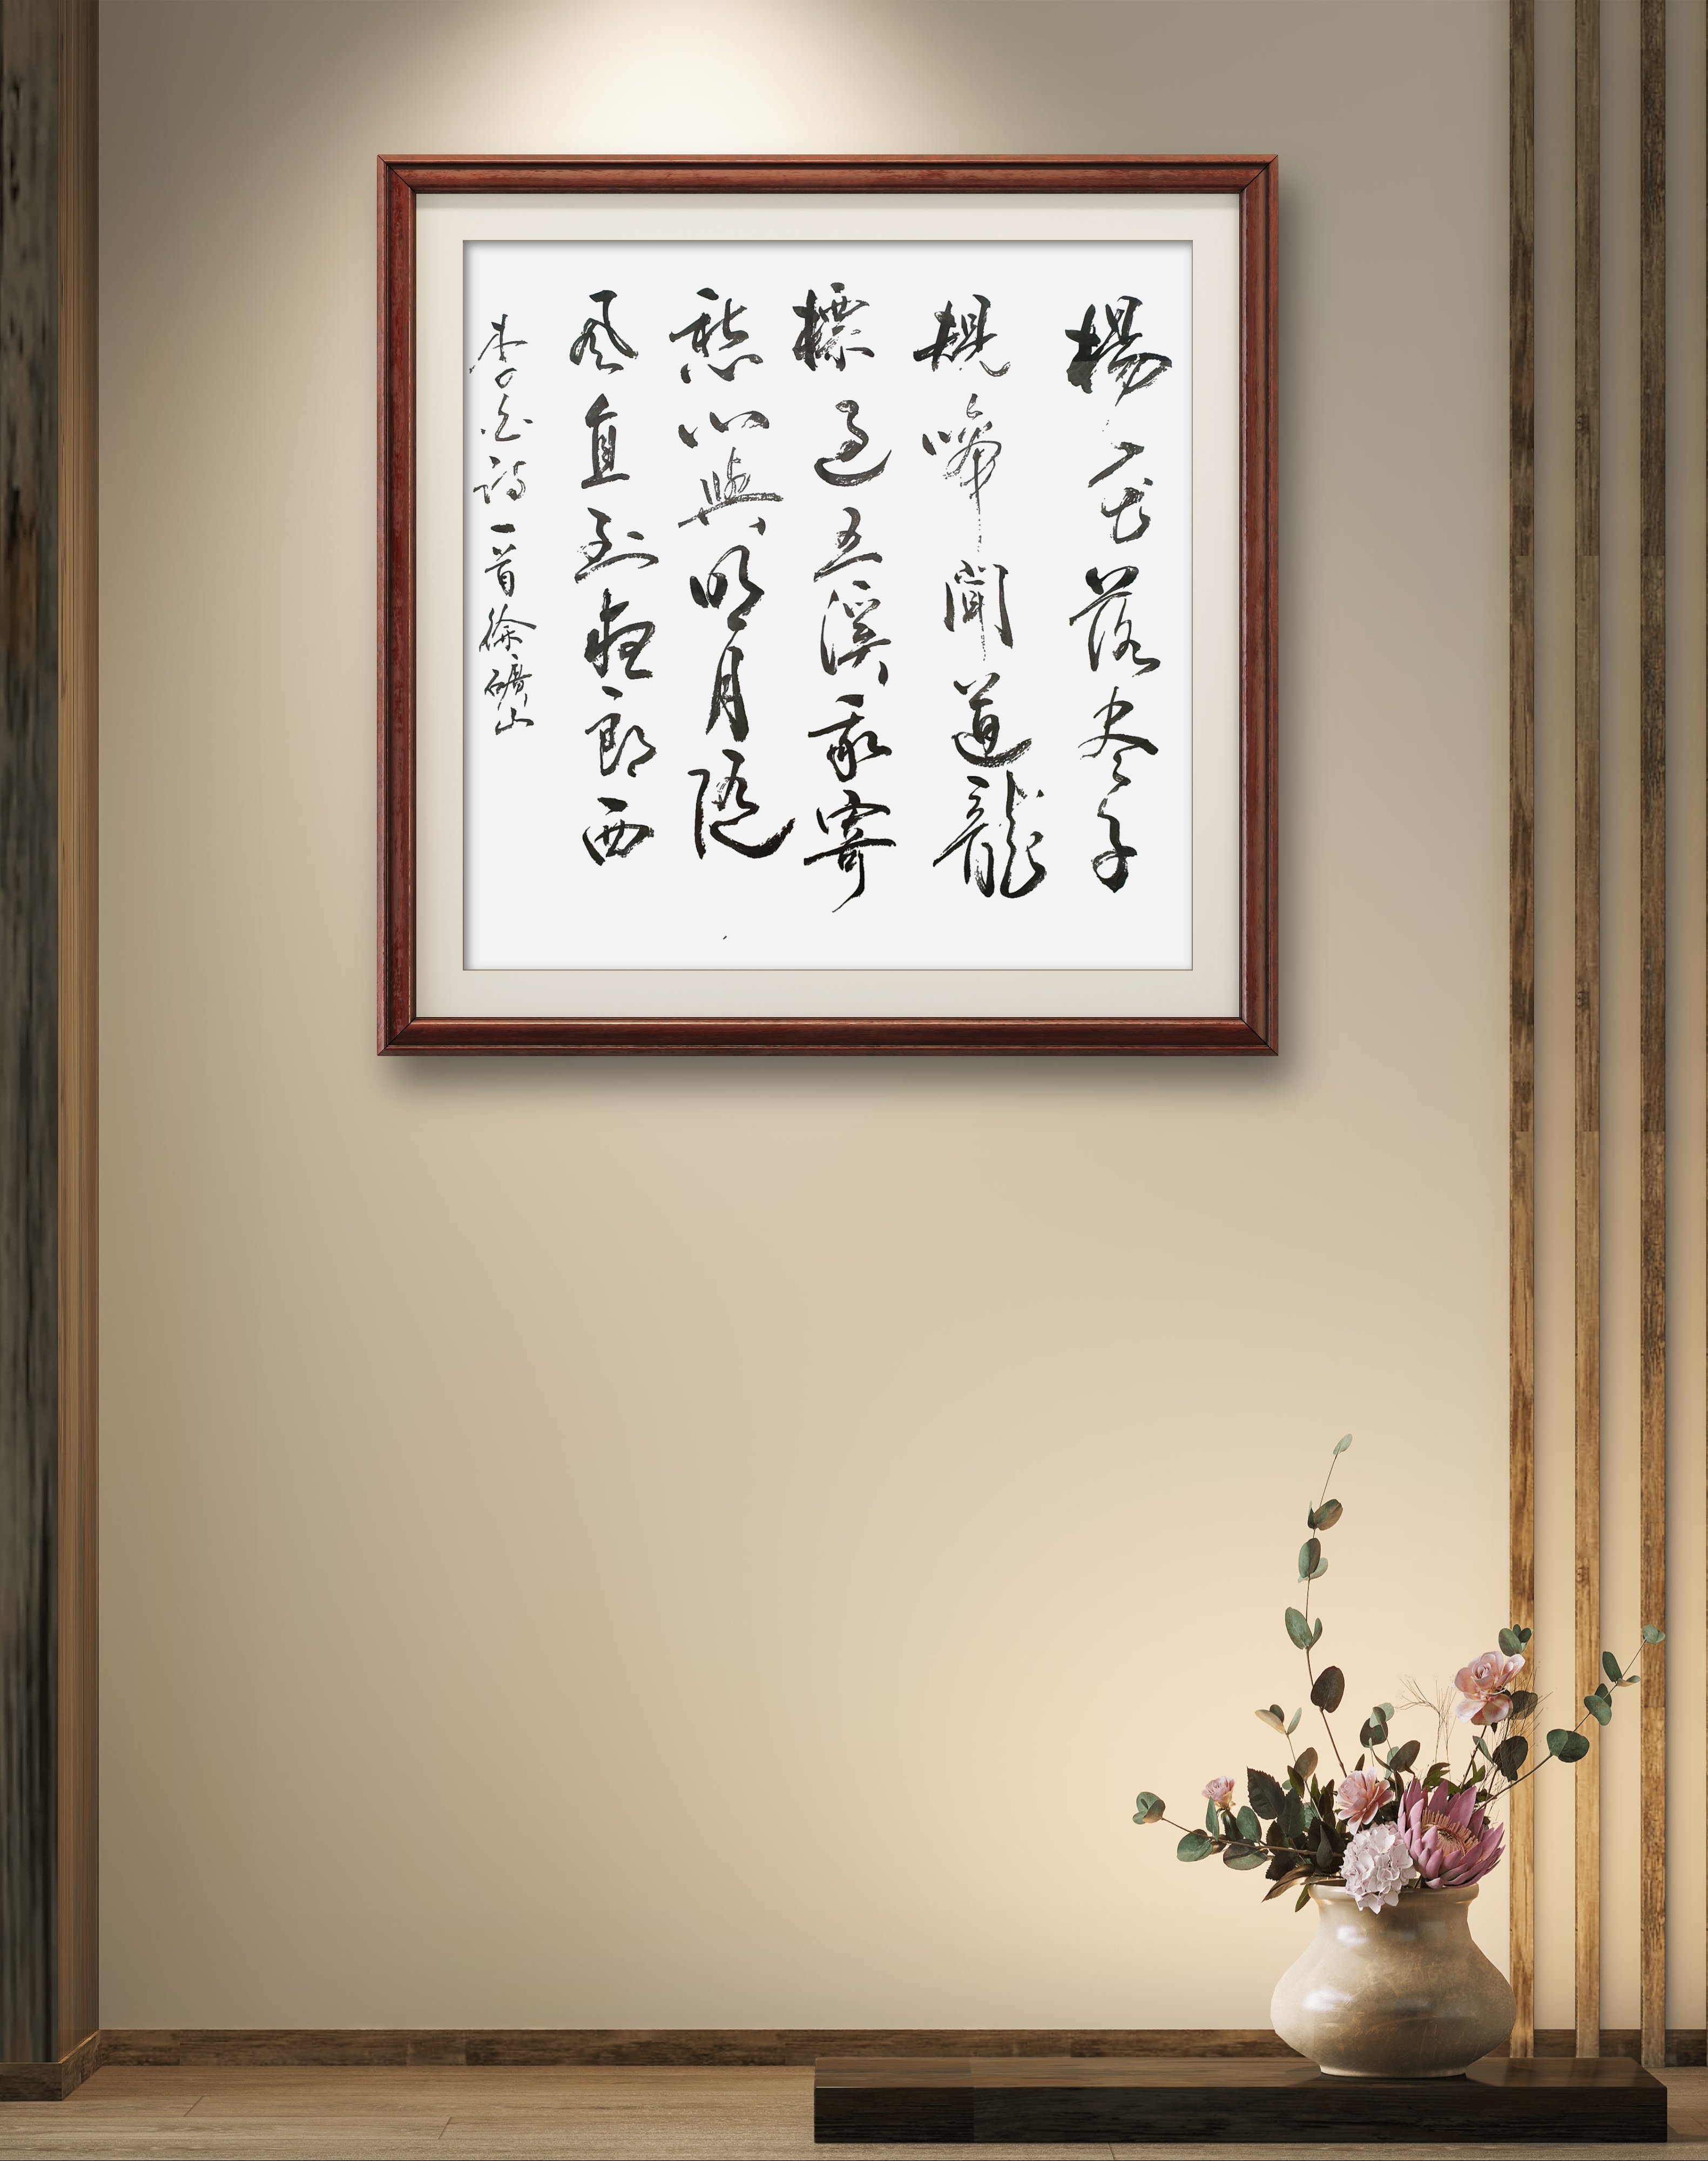 楊花落尽子
規啼聞道龍
標過五溪我寄
愁心與明月随
風直到夜郎西
李白詩一首徐礦山